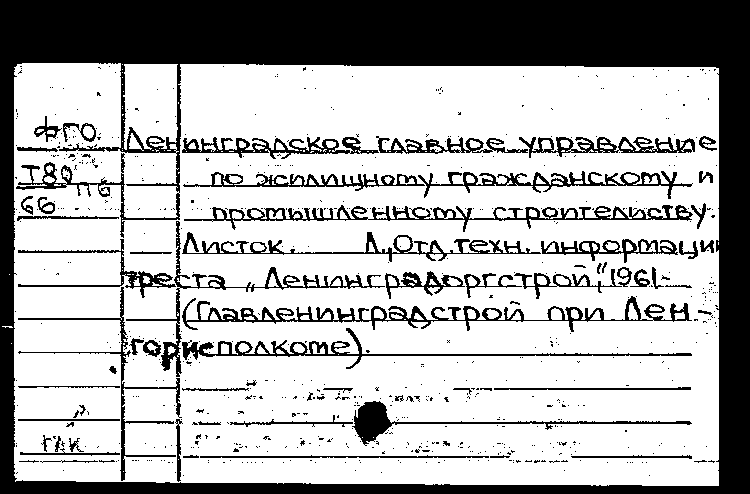 ФГО
Ленинградское главное управление
Т80 п6
по жилищному гражданскому и
66
промышленному строительству.
Листок. Л., Отд. техн. информации
треста „Ленинградоргстрой“, 1961-
(Главленинградстрой при Лен-
горисполкоме).
ГАК